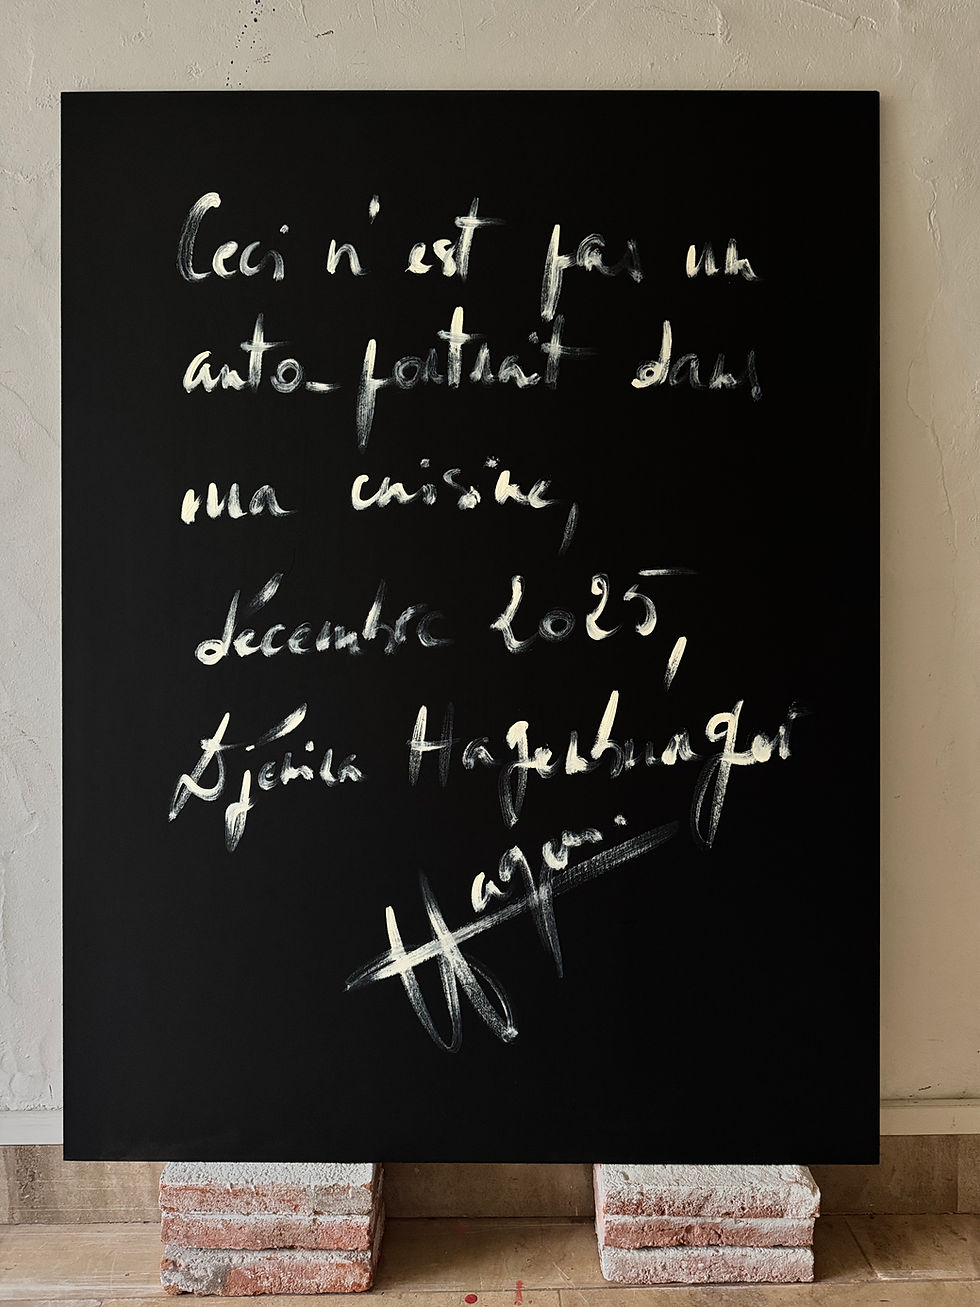 Ceci n'est pas un
auto-portrait dans
ma cuisine,
décembre 2025,
Djémila Hagenburger
Hagen.